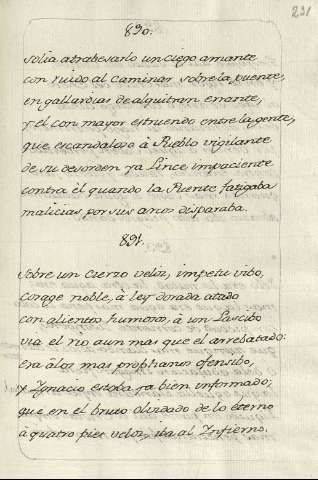 231
890.
Solia atrabesarlo un ciego amante
con ruido al caminar sobre la puente,
en gallardias de alquitran errante,
y el con mayor estruendo entre la gente,
que escandaloso à Pueblo vigilante
de su desorden ya Lince impaciente
contra èl quando la Puente fatigaba
malicias por sus arcos disparaba.
891.
Sobre un cierzo veloz, impetu vibo,
corage noble, à ley dorada atado
con alientos humosos, à un Lascibo
via el rio aun mas que el arrebatado:
era à los mas prophanos ofensibo,
y Ygnacio estaba ya bien informado;
que en el bruto olvidado de lo eterno
à quatro pies veloz, iba al Infierno.